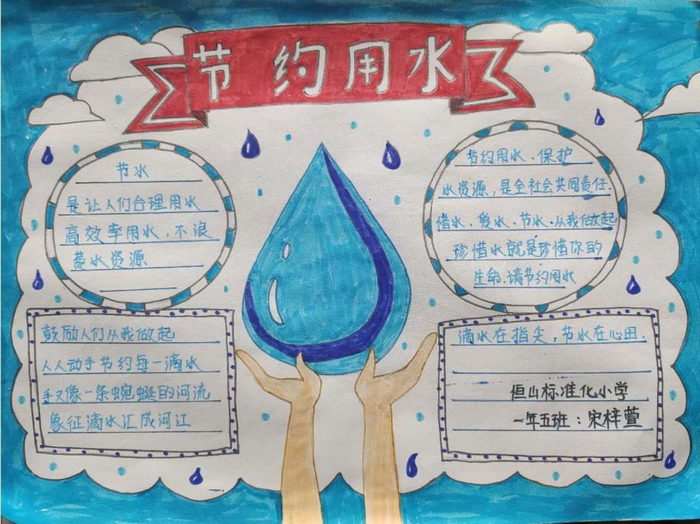 节约用水
节水
是让人们合理用水
高效率用水，不浪
费水资源
节约用水、保护
水资源，是全社会共同责任.
惜水、爱水、节水、从我做起
珍惜水就是珍惜你的
生命.请节约用水
鼓励人们从我做起
人人动手节约每一滴水
手又像一条蜿蜒的河流
象征滴水汇成河江
滴水在指尖，节水在心田.
恒山标准化小学
一年五班：宋梓萱